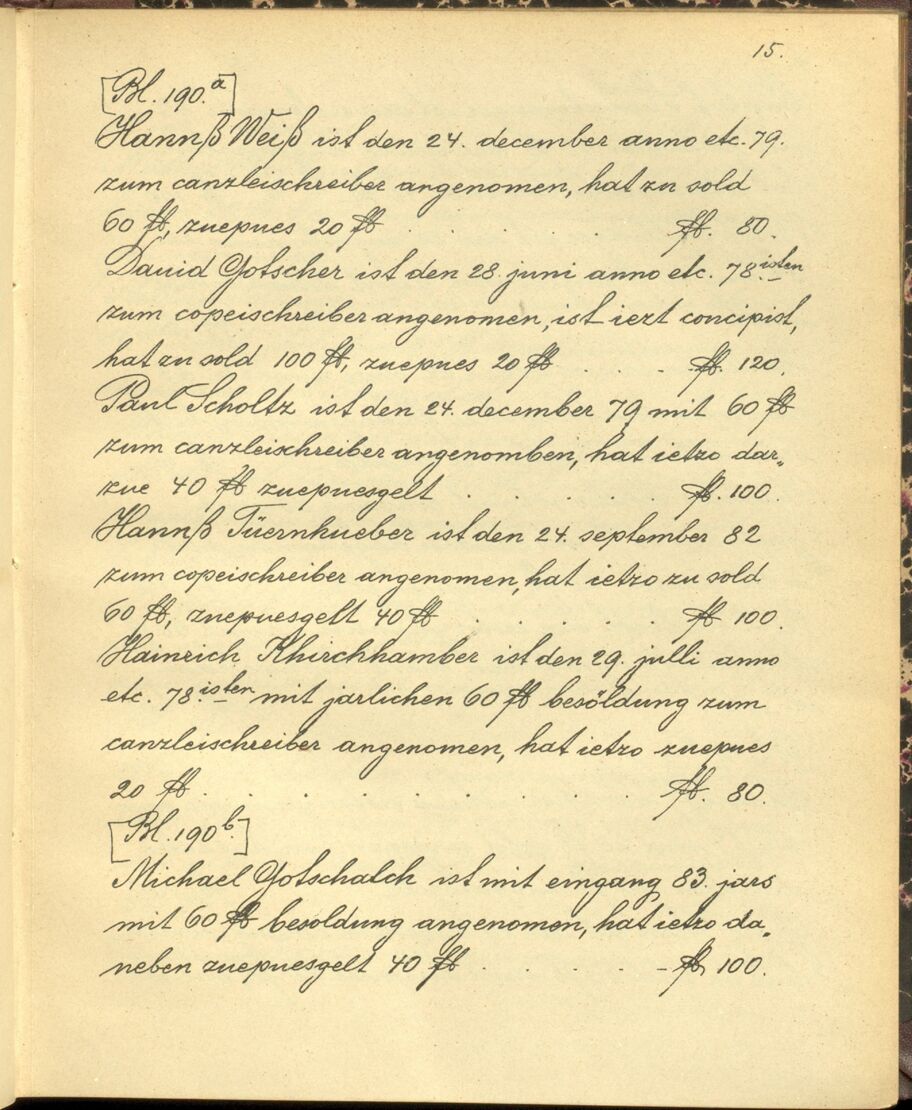 15.
[Bl. 190.a]
Hannß Weiß ist den 24. december anno etc. 79.
zum canzleischreiber angenomen, hat zu sold
60 fl, zuepues 20 fl . . . . . fl. 80.
Dauid Gotscher ist den 28. juni anno etc. 78isten
zum copeischreiber angenomen, ist iezt concipist,
hat zu sold 100 fl, zuepues 20 fl . . . fl. 120.
Paul Scholtz ist den 24. december 79 mit 60 fl
zum canzleischreiber angenomben, hat ietzo dar„
zue 40 fl zuepuesgelt . . . . . fl. 100.
Hannß Tüernhueber ist den 24. september 82
zum copeischreiber angenomen, hat ietzo zu sold
60 fl, zuepuesgelt 40 fl . . . . . fl 100.
Hainrich Khirchhamber ist den 29. julli anno
etc. 78.isten mit jarlichen 60 fl besöldung zum
canzleischreiber angenomen, hat ietzo zuepues
20 fl . . . . . . . . . fl. 80.
[Bl. 190b.]
Michael Gotschalch ist mit eingang 83. jars
mit 60 fl besoldung angenomen, hat ietzo da„
neben zuepuesgelt 40 fl . . . . - fl, 100.